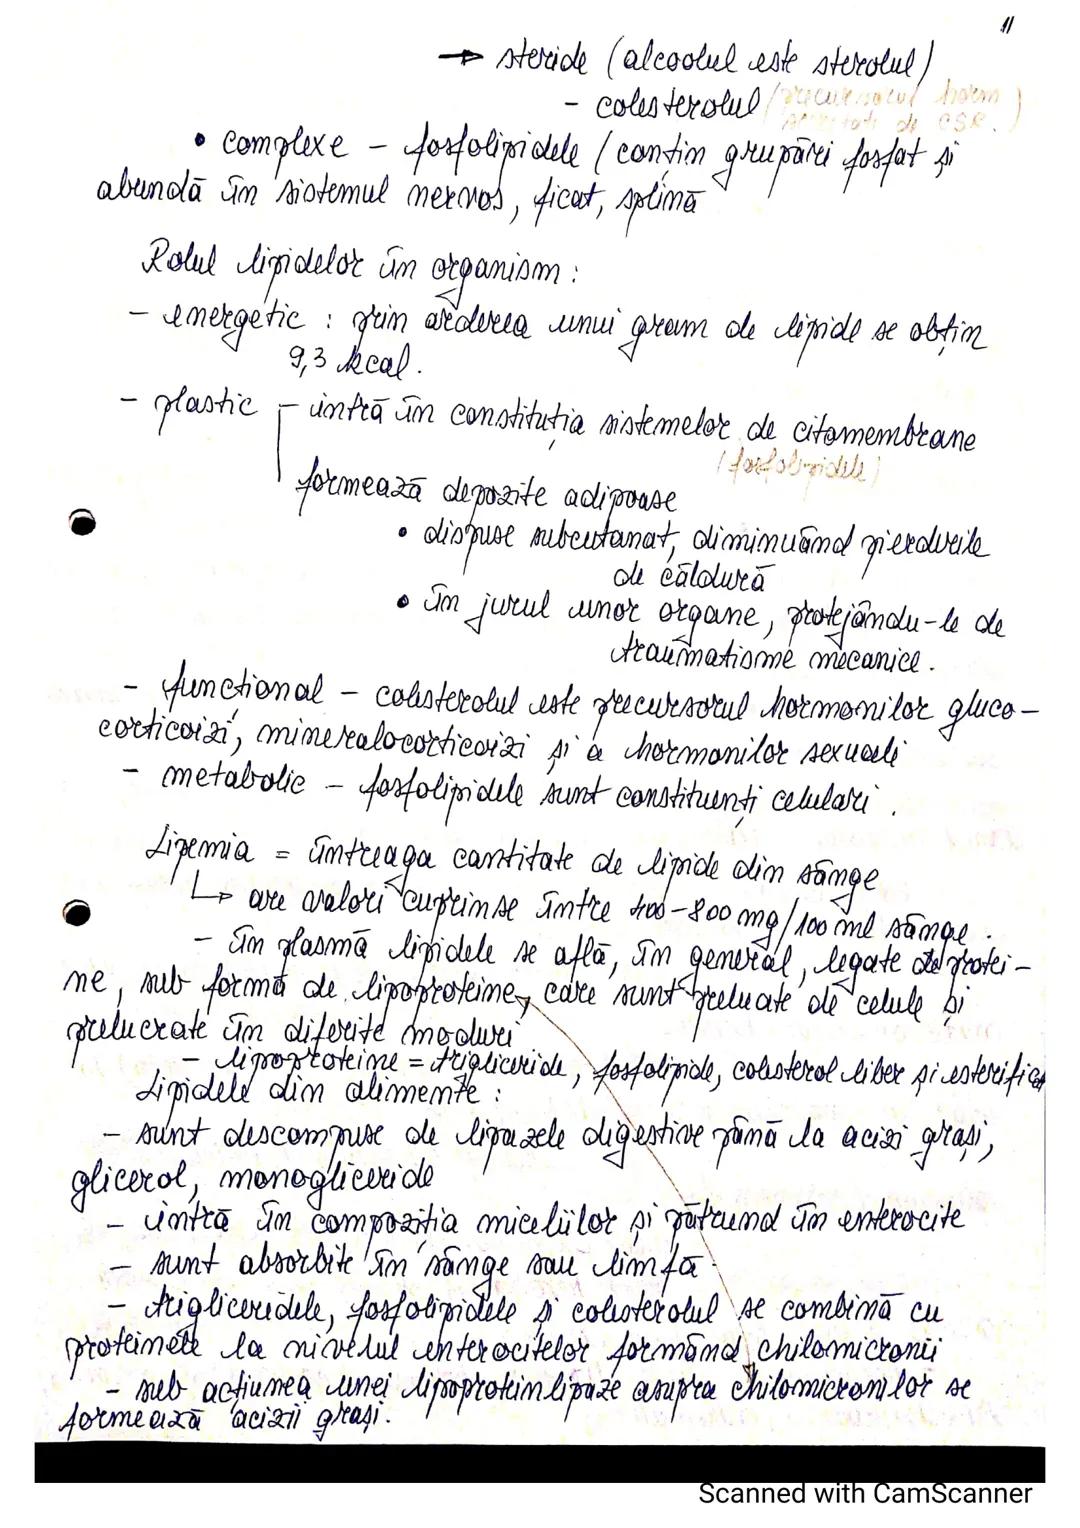 11
→ steride (alcoolul este sterolul)
- colesterolul (precursorul horm
de CSR.)
• complexe - fosfolipidele (conțin grupări fosfat și
abundă în sistemul nervos, ficat, splină
Rolul lipidelor în organism:
- energetic : prin arderea unui gram de lipide se obțin
9,3 kcal.
- plastic - intră în constituția sistemelor de citomembrane
(fosfolipidele)
formează depozite adipoase
• dispuse subcutanat, diminuând pierderile
de căldură
• în jurul unor organe, protejându-le de
traumatisme mecanice.
- funcțional - colesterolul este precursorul hormonilor gluco-
corticoizi, mineralocorticoizi și a hormonilor sexuali
- metabolic - fosfolipidele sunt constituenți celulari.
Lipemia = întreaga cantitate de lipide din sânge
↳ are valori cuprinse între 400-800 mg/100 ml sânge.
- în plasmă lipidele se află, în general, legate de protei-
ne, sub formă de lipoproteine, care sunt preluate de celule și
prelucrate în diferite moduri
- lipoproteine = trigliceride, fosfolipide, colesterol liber și esterificat
Lipidele din alimente :
- sunt descompuse de lipazele digestive până la acizi grași,
glicerol, monogliceride
- intră în compoziția miceliilor și pătrund în enterocite
- sunt absorbite în sânge sau limfă
- trigliceridele, fosfolipidele și colesterolul se combină cu
proteinele la nivelul enterocitelor formând chilomicronii
- sub acțiunea unei lipoproteinlipaze asupra chilomicronilor se
formează acizii grași.
Scanned with CamScanner